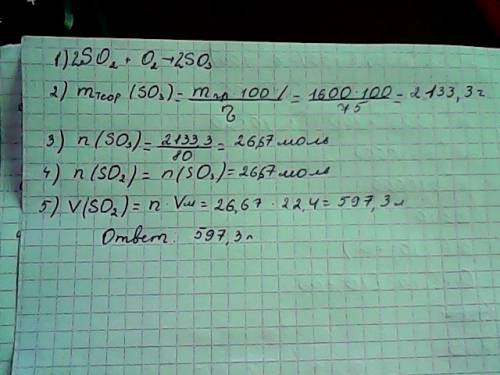 1) 2SO₂ + O₂ → 2SO₃
2) mтеор (SO₃) = mпр · 100% / η = 1600 · 100 / 75 = 2133,3 г
3) n (SO₃) = 2133,3 / 80 = 26,67 моль
4) n (SO₂) = n (SO₃) = 26,67 моль
5) V (SO₂) = n · Vм = 26,67 · 22,4 = 597,3 л
Ответ: 597,3 л